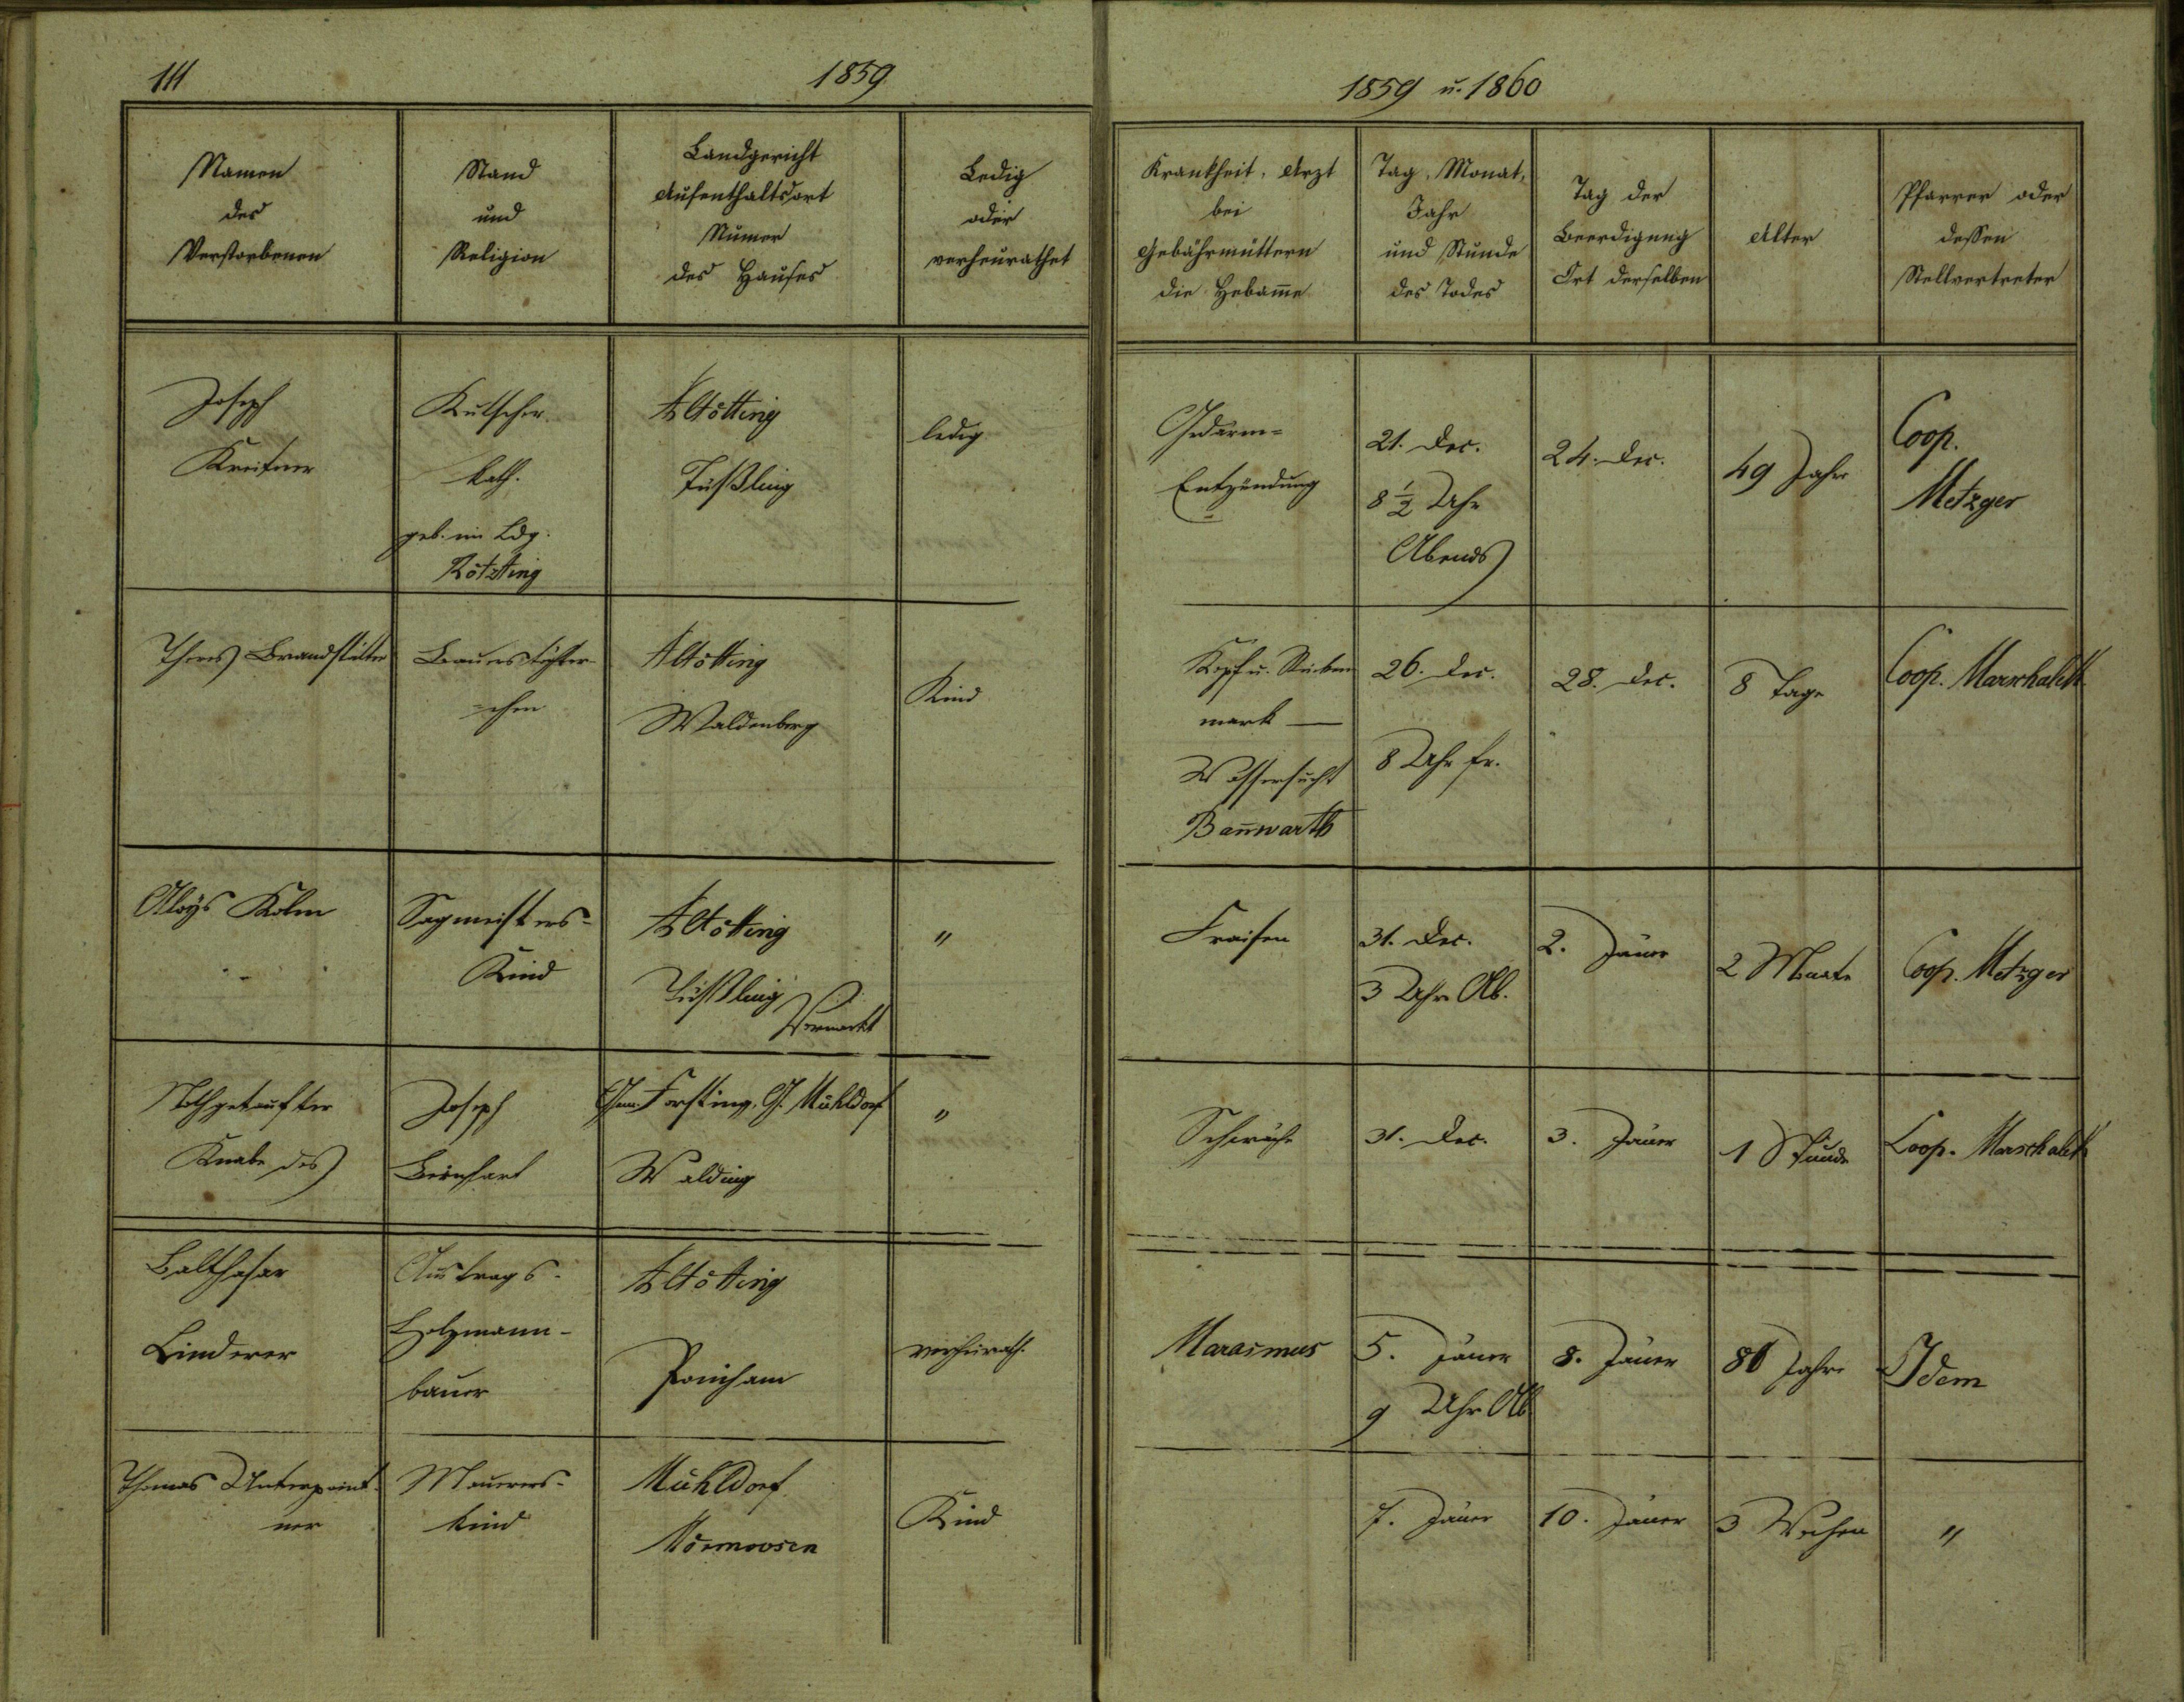 111
1859
Namen
des
Verstorbenen
Stand
und
Religion
Landgericht
Aufenthaltsort
Numer
des Hauses
Ledig
oder
verheurathet
Joseph
Kutscher
kath.
geb. im Ldg.
Kötzting
Altötting
Tüßling
ledig
Theres Brandstätter
Bauerstöchter-
chen
Altötting
Waldenberg
Kind
Aloys Kolm
Sagmeisters-
Kind
Altötting
Tüßling
Vormarkt
"
Nothgetaufter
Knabe des
Joseph
Forsting, G. Mühldorf
Walding
"
Balthasar
Linderer
Austrags-
Holzmann-
bauer
Altötting
verheurath.
Thomas Unterpoint-
ner
Maurers-
kind
Mühldorf
Mörmoosen
Kind
1859 u. 1860
Krankheit, Arzt
bei
Gebährmüttern
die Hebam̄e
Tag, Monat,
Jahr
und Stunde
des Todes
Tag der
Beerdigung
Ort derselben
Alter
Pfarrer oder
dessen
Stellvertreter
Gedärm-
Entzündung
21. Dec.
8 ½ Uhr
Abends
24. Dec.
49 Jahre
Coop.
Metzger
Kopf u. Rücken
mark —
Wassersucht
Ban̄warth
26. Dec.
8 Uhr fr.
28. Dec.
8 Tage
Coop. Marschalek
Fraisen
31. Dec.
3 Uhr Ab.
2. Jäner
2 Monate
Coop. Metzger
Schwäche
31. Dec.
3. Jäner
1 Stunde
Coop. Marschalek
Marasmus
5. Jäner
9 Uhr Ab.
8. Jäner
Jahre
Idem
7. Jäner
10. Jäner
3 Wochen
"